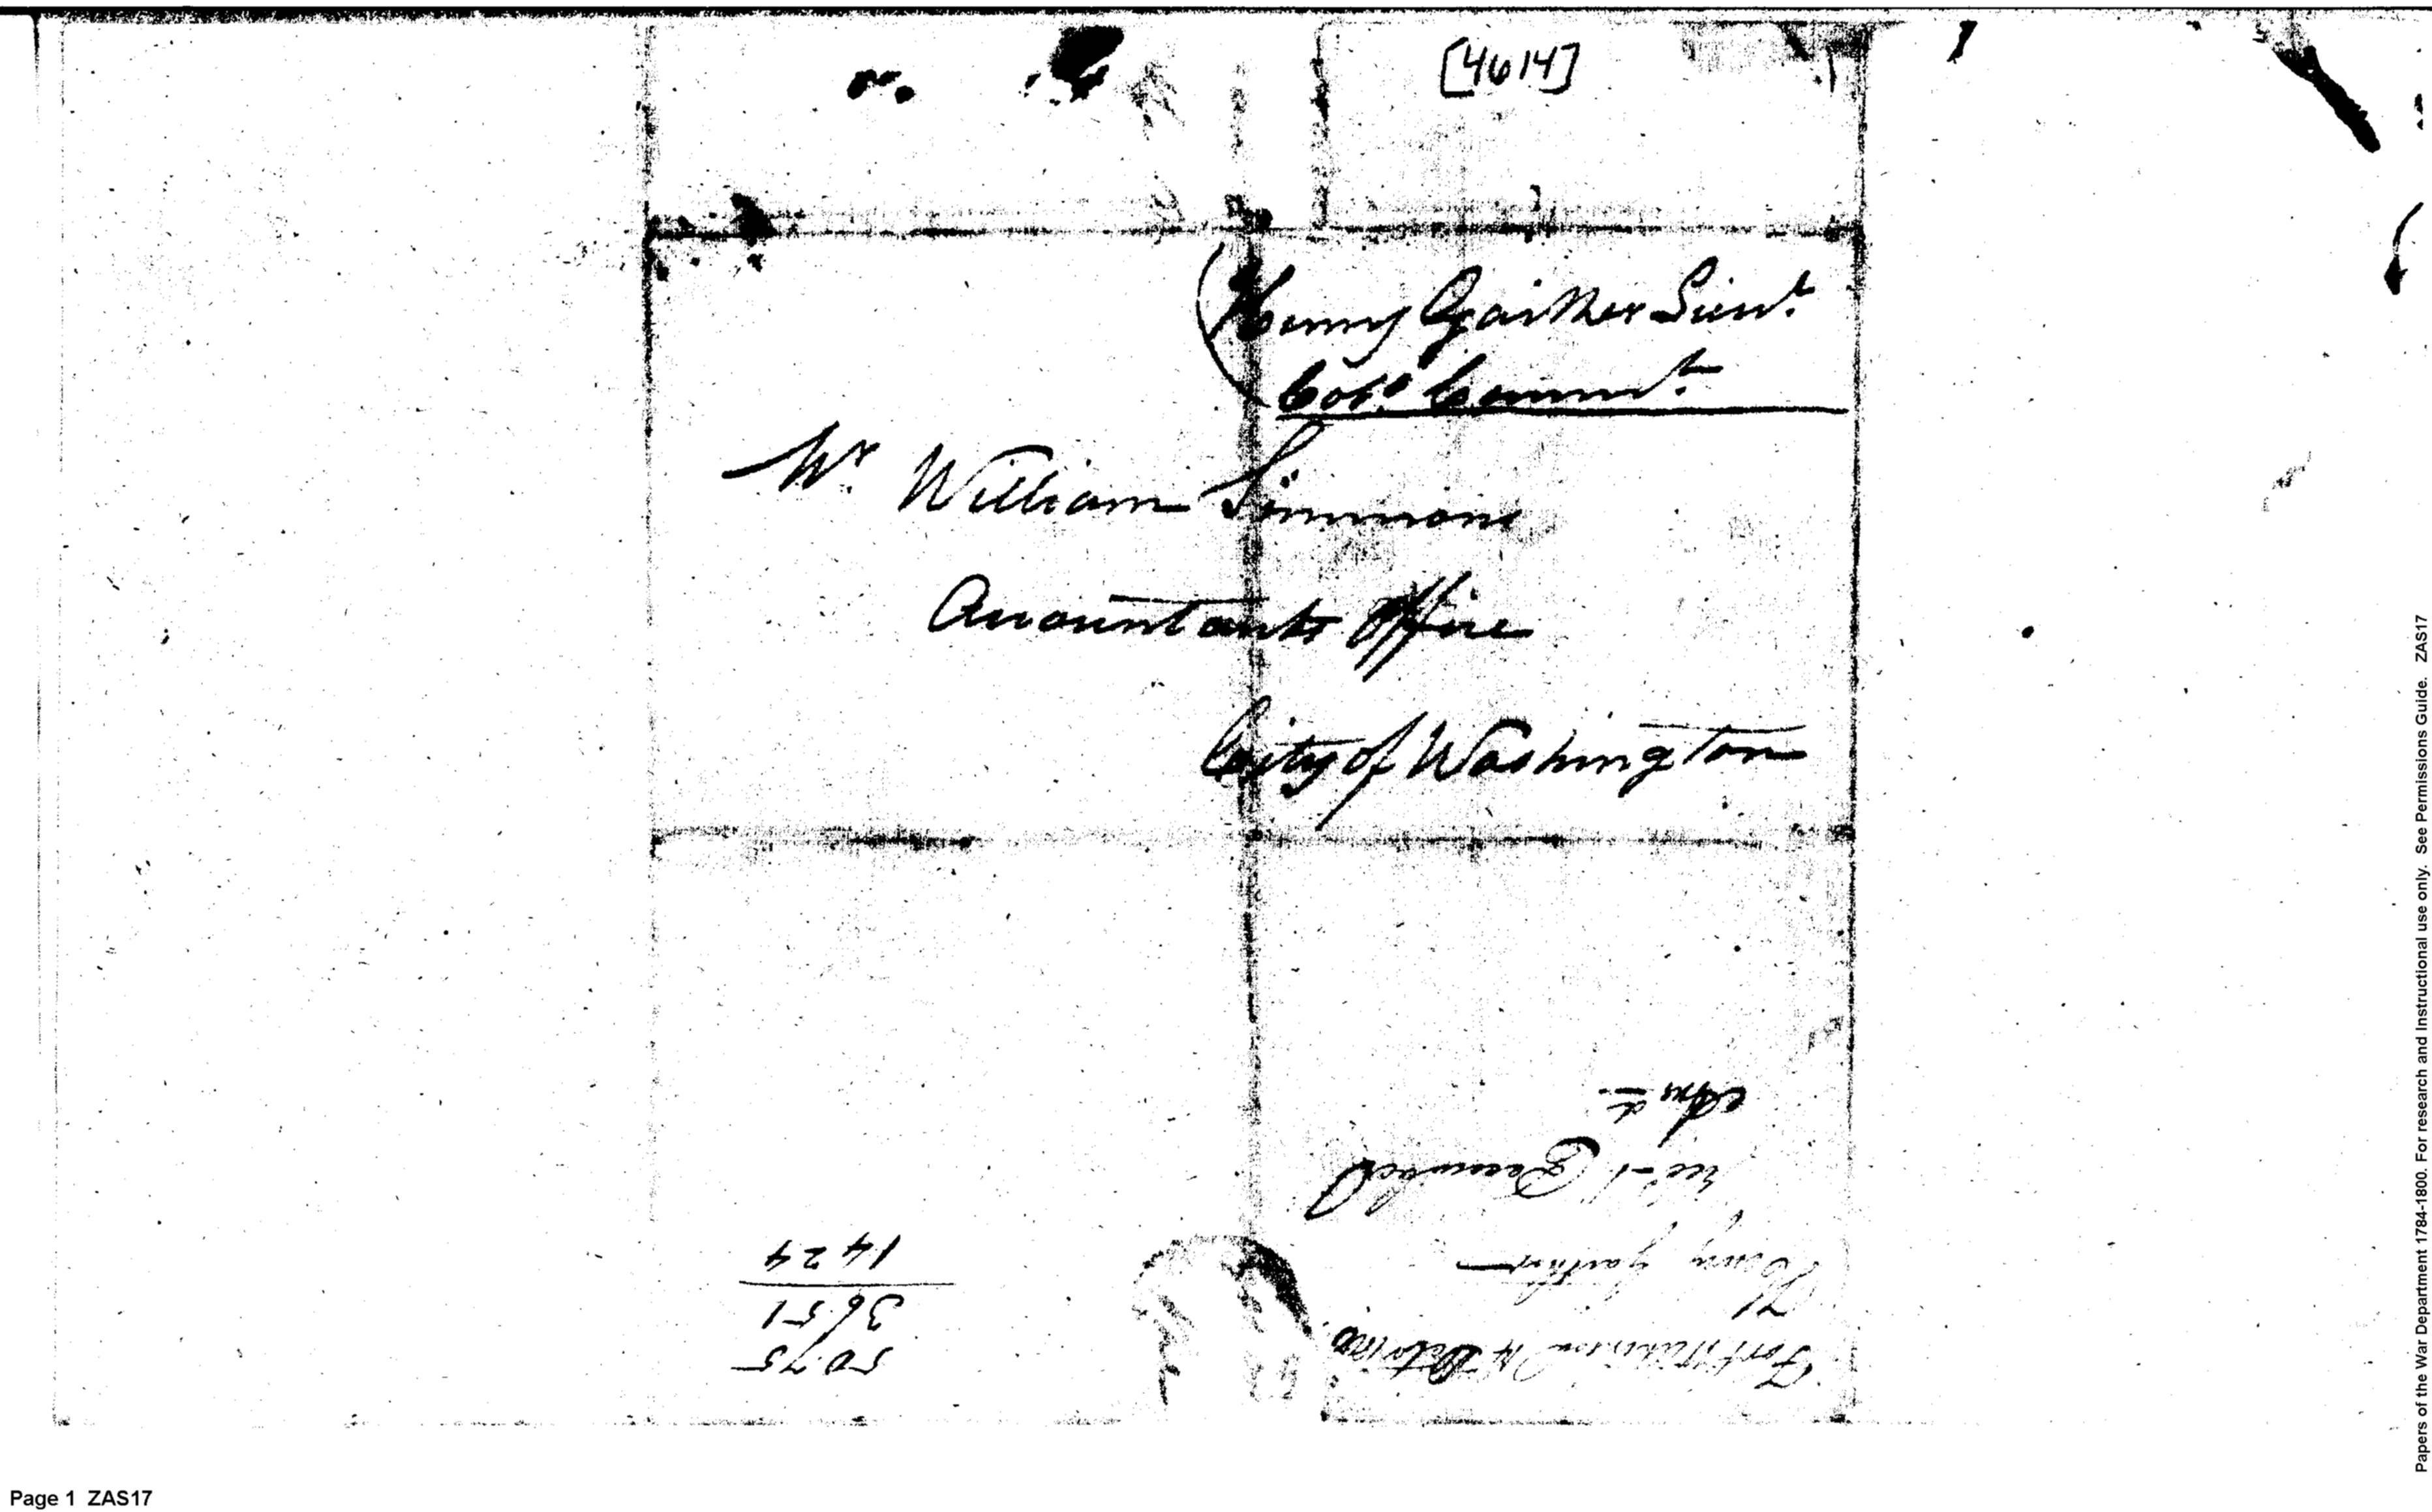 [4614]
(Henny Gaither Lieut.
Colo. Commt.
Mr. William Simmons
Accountants Office
City of Washington
5075
3651
1424
Fort 14 Octo 1800
Henny Gaither
rec'd
Ansd.
Page 1 ZAS17
Papers of the War Department 1784-1800. For research and Instructional use only. See Permissions Guide. ZAS17